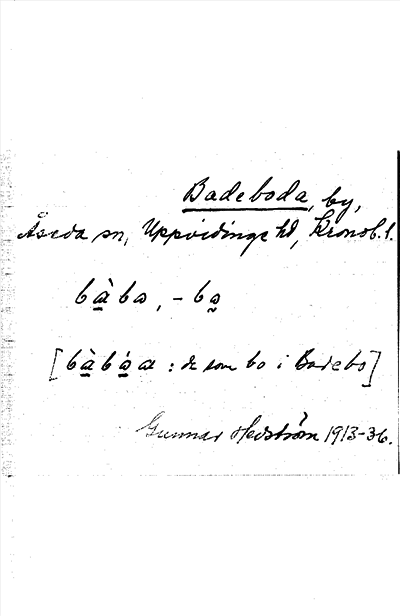 Badeboda, by,
Åseda sn, Uppvidinge hd, Kronob. l.
bà̱bɷ, – bɷ̰
[bà̱bɷ́a : de som bo i Badebo]
Gunnar Hedström 1913-36.